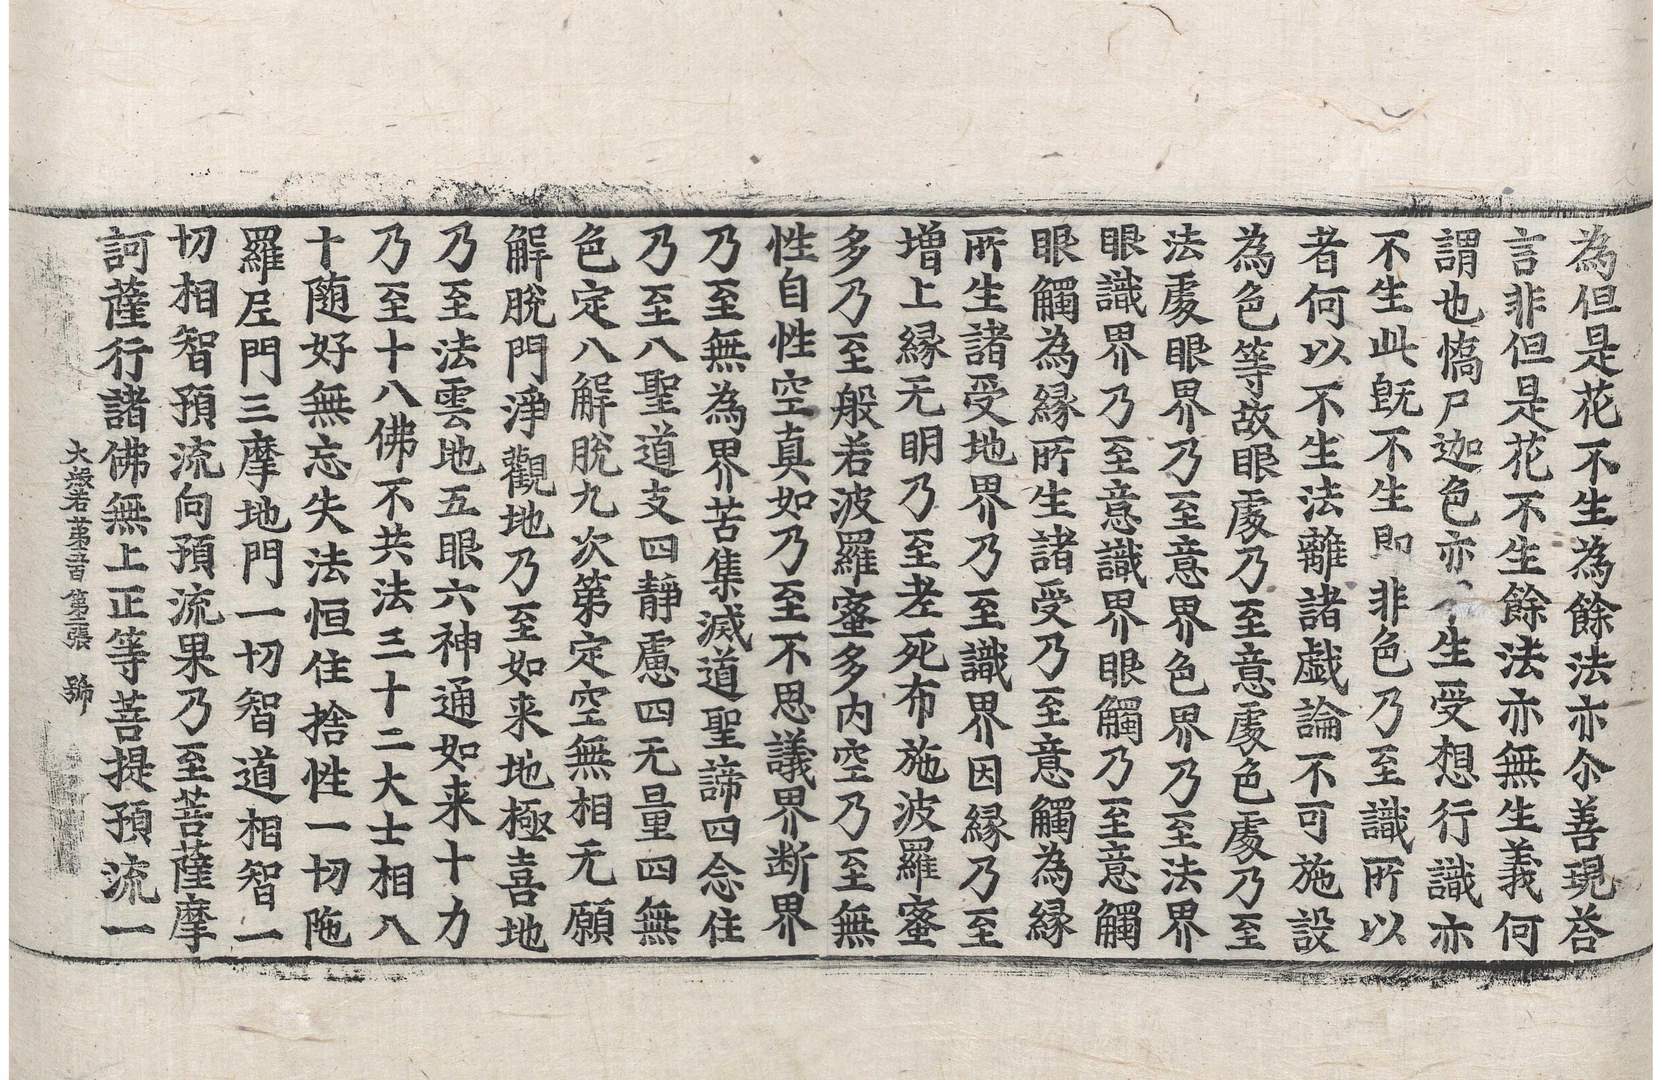 為但是花不生為餘法亦尒善現荅
言非但是花不生餘法亦無生義何
謂也憍尸迦色亦不生受想行識亦
不生此旣不生即非色乃至識所以
者何以不生法離諸戱論不可施設
為色等故眼處乃至意處色處乃至
法處眼界乃至意界色界乃至法界
眼識界乃至意識界眼觸乃至意觸
眼觸為縁所生諸受乃至意觸為縁
所生諸受地界乃至識界因縁乃至
增上縁无明乃至老死布施波羅蜜
多乃至般若波羅蜜多內空乃至無
性自性空真如乃至不思議界断界
乃至無為界苦集滅道聖諦四念住
乃至八聖道支四靜慮四无量四無
色定八解脫九次第定空無相无願
解脫門淨觀地乃至如来地極喜地
乃至法雲地五眼六神通如来十力
乃至十八佛不共法三十二大士相八
十随好無忘失法恒住捨性一切陁
羅尼門三摩地門一切智道相智一
切相智預流向預流果乃至菩薩摩
訶薩行諸佛無上正等菩提預流一
大般若第五百 第三張 號